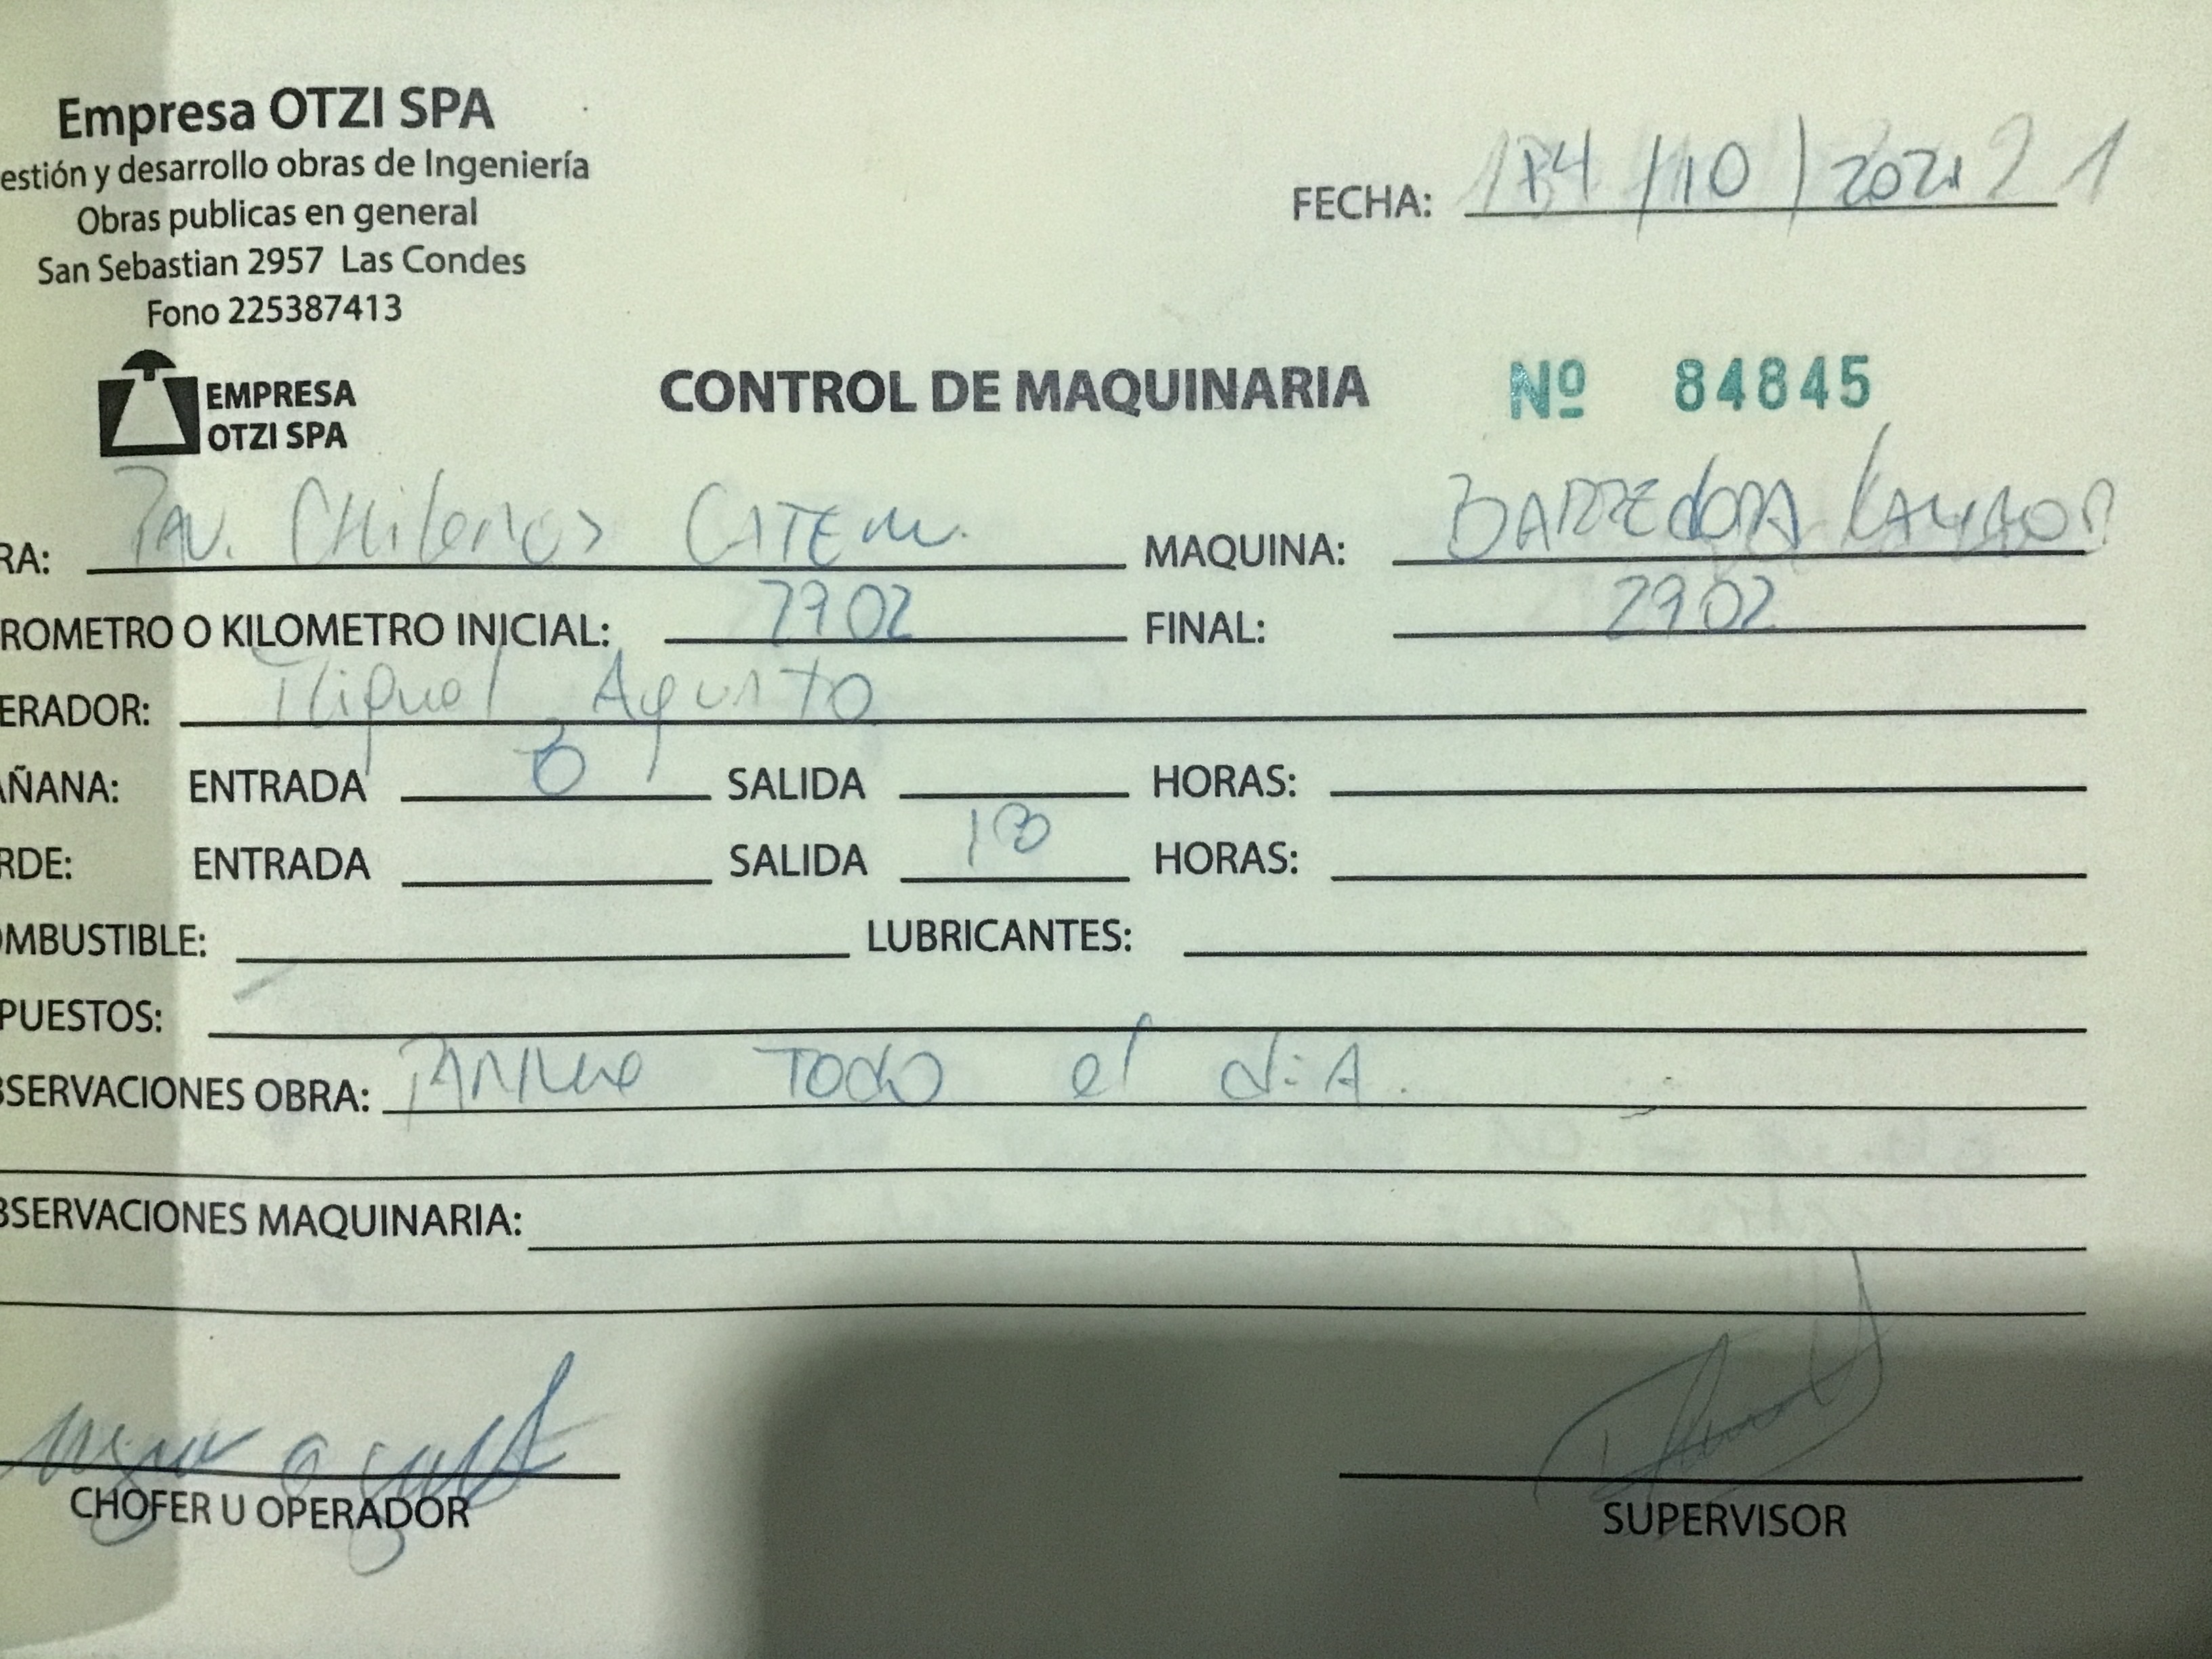 Empresa OTZI SPA
estión y desarrollo obras de Ingeniería
Obras publicas en general
San Sebastian 2957 Las Condes
Fono 225387413
FECHA: 14/10/2021
EMPRESA
OTZI SPA
CONTROL DE MAQUINARIA Nº 84845
RA: Pav. Chilenos MAQUINA: BARREDORA
ROMETRO O KILOMETRO INICIAL: 2902 FINAL: 2902
ERADOR: Miguel Agusto
AÑANA: ENTRADA 8 SALIDA HORAS:
RDE: ENTRADA SALIDA 18 HORAS:
OMBUSTIBLE: LUBRICANTES:
PUESTOS:
BSERVACIONES OBRA: TODO el diA.
BSERVACIONES MAQUINARIA:
CHOFER U OPERADOR
SUPERVISOR